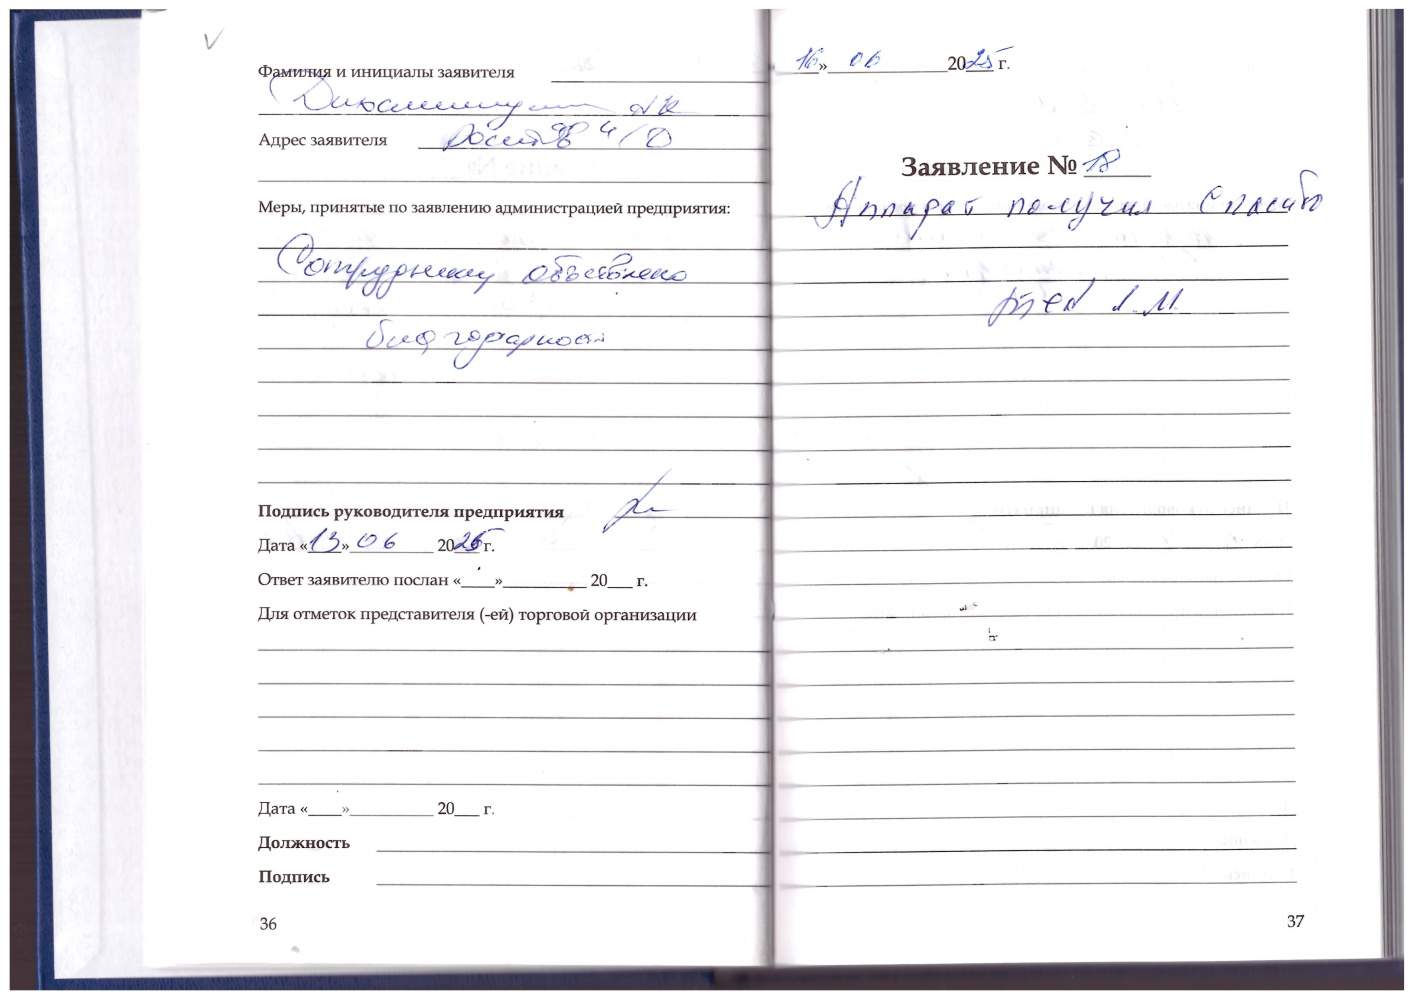 Фамилия и инициалы заявителя
Адрес заявителя Ростов н/Д
Меры, принятые по заявлению администрацией предприятия:
Сотруднику объявлена
благодарность
Подпись руководителя предприятия
Дата «13» 06 2025 г.
Ответ заявителю послан «____»__________ 20___ г.
Для отметок представителя (-ей) торговой организации
Дата «____»__________ 20___ г.
Должность
Подпись
36
16» 06 2025 г.
Заявление № 18
Аппарат получил Спасибо
Л.М.
37